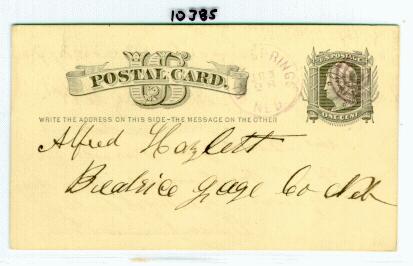 10385
US
POSTAL CARD.
SPRINGS
NEB
U.S. POSTAGE
ONE CENT
WRITE THE ADDRESS ON THIS SIDE-THE MESSAGE ON THE OTHER
Alfred Hazlett
Beatrice Gage Co Neb